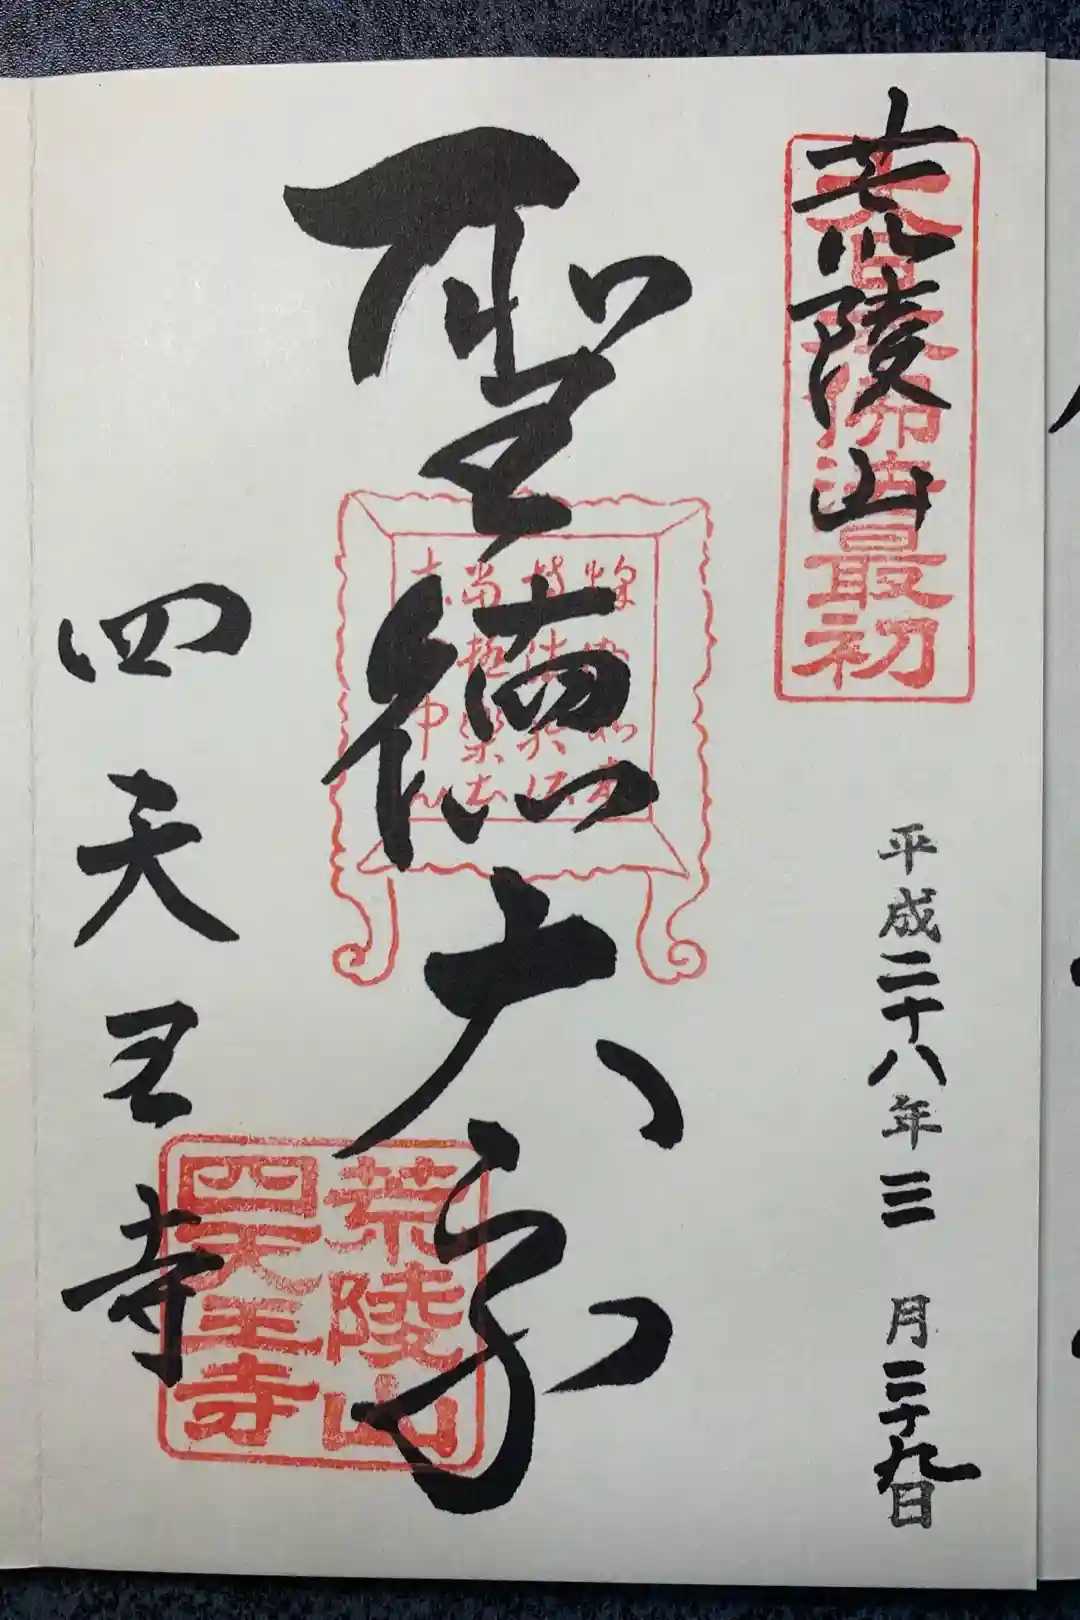 荒陵山
大日本佛法最初
平成二十八年三月二十九日
聖徳太子
四天王寺
荒陵山
四天王寺